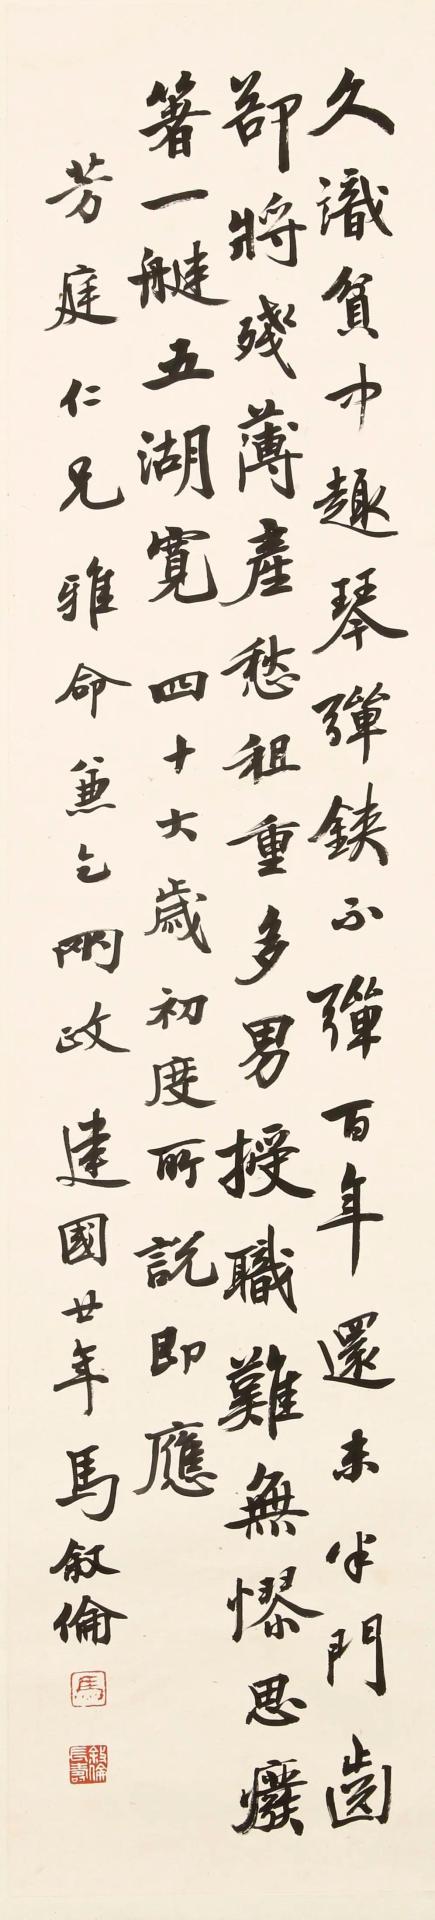 久識貧中趣琴彈鋏不彈百年還未半門齒
卻將殘薄產愁租重多男授職難無憀思癈
箸一艇五湖寬 四十六歲初度所說即應
芳庭仁兄雅命兼乞兩政 建國廿年馬叙倫
馬
敘倫長壽